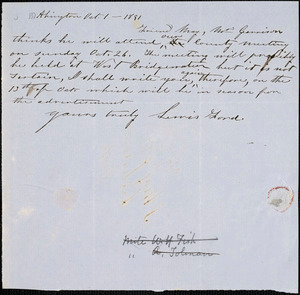 Abington Oct. 1 - 1851
Friend May, Mr. Garrison
thinks he will attend our County meeting
on sunday Oct. 26. The meeting will probably
be held at West Bridgewater but it is not
certain, I shall write you, therefore, on the
13th of Octr which will be in season for
the advertisement
Yours truly Lewis Ford
write W H Fish
" A. Tolman